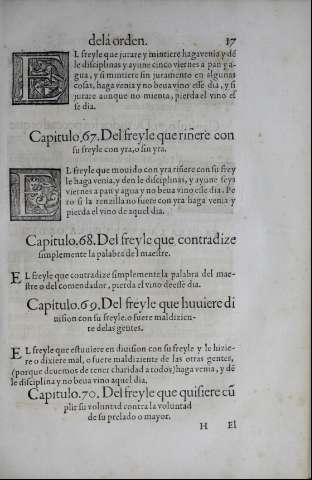 dela orden. 17
EL freyle que jurare y mintiere haga venia y dé
le disciplinas y ayune cinco viernes a pan y a-
gua, y si mintiere sin juramento en algunas
cosas, haga venia y no beua vino esse dia, y si
jurare aunque no mienta, pierda el vino es
se dia.
Capitulo.67. Del freyle que riñere con
su freyle con yra, o sin yra.
EL freyle que mouido con yra riñere con su frey
le haga venia, y den le disciplinas, y ayune seys
viernes a pan y agua y no beua vino esse dia. Pe
ro si la renzilla no fuere con yra haga venia y
pierda el vino de aquel dia.
Capitulo.68. Del freyle que contradize
simplemente la palabra del maestre.
EL freyle que contradize simplemente la palabra del mae-
stre o del comendador, pierda el vino de esse dia.
Capitulo.69. Del freyle que huuiere di
uision con su freyle. o fuere maldizien-
te de las gentes.
EL freyle que estuuiere en diuision con su freyle y le hizie-
re o dixere mal, o fuere maldiziente de las otras gentes,
(porque deuemos de tener charidad a todos) haga venia, y dé
le disciplina y no beua vino aquel dia.
Capitulo.70. Del freyle que quisiere cũ
plir su voluntad contra la voluntad
de su prelado o mayor.
H El